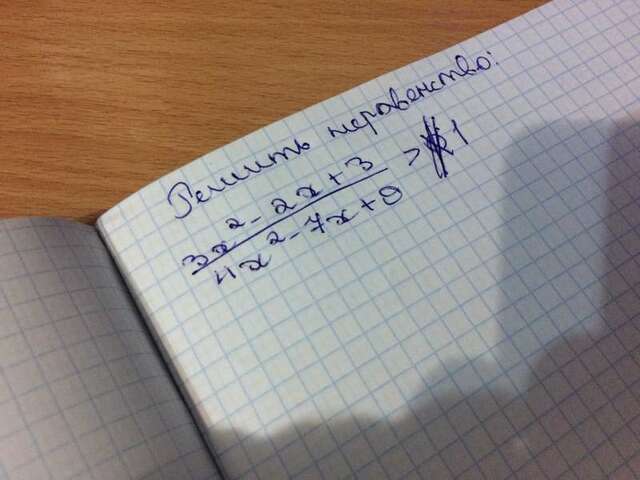 Решить неравенство:
3x² - 2x + 3 > 1
4x² - 7x + 8